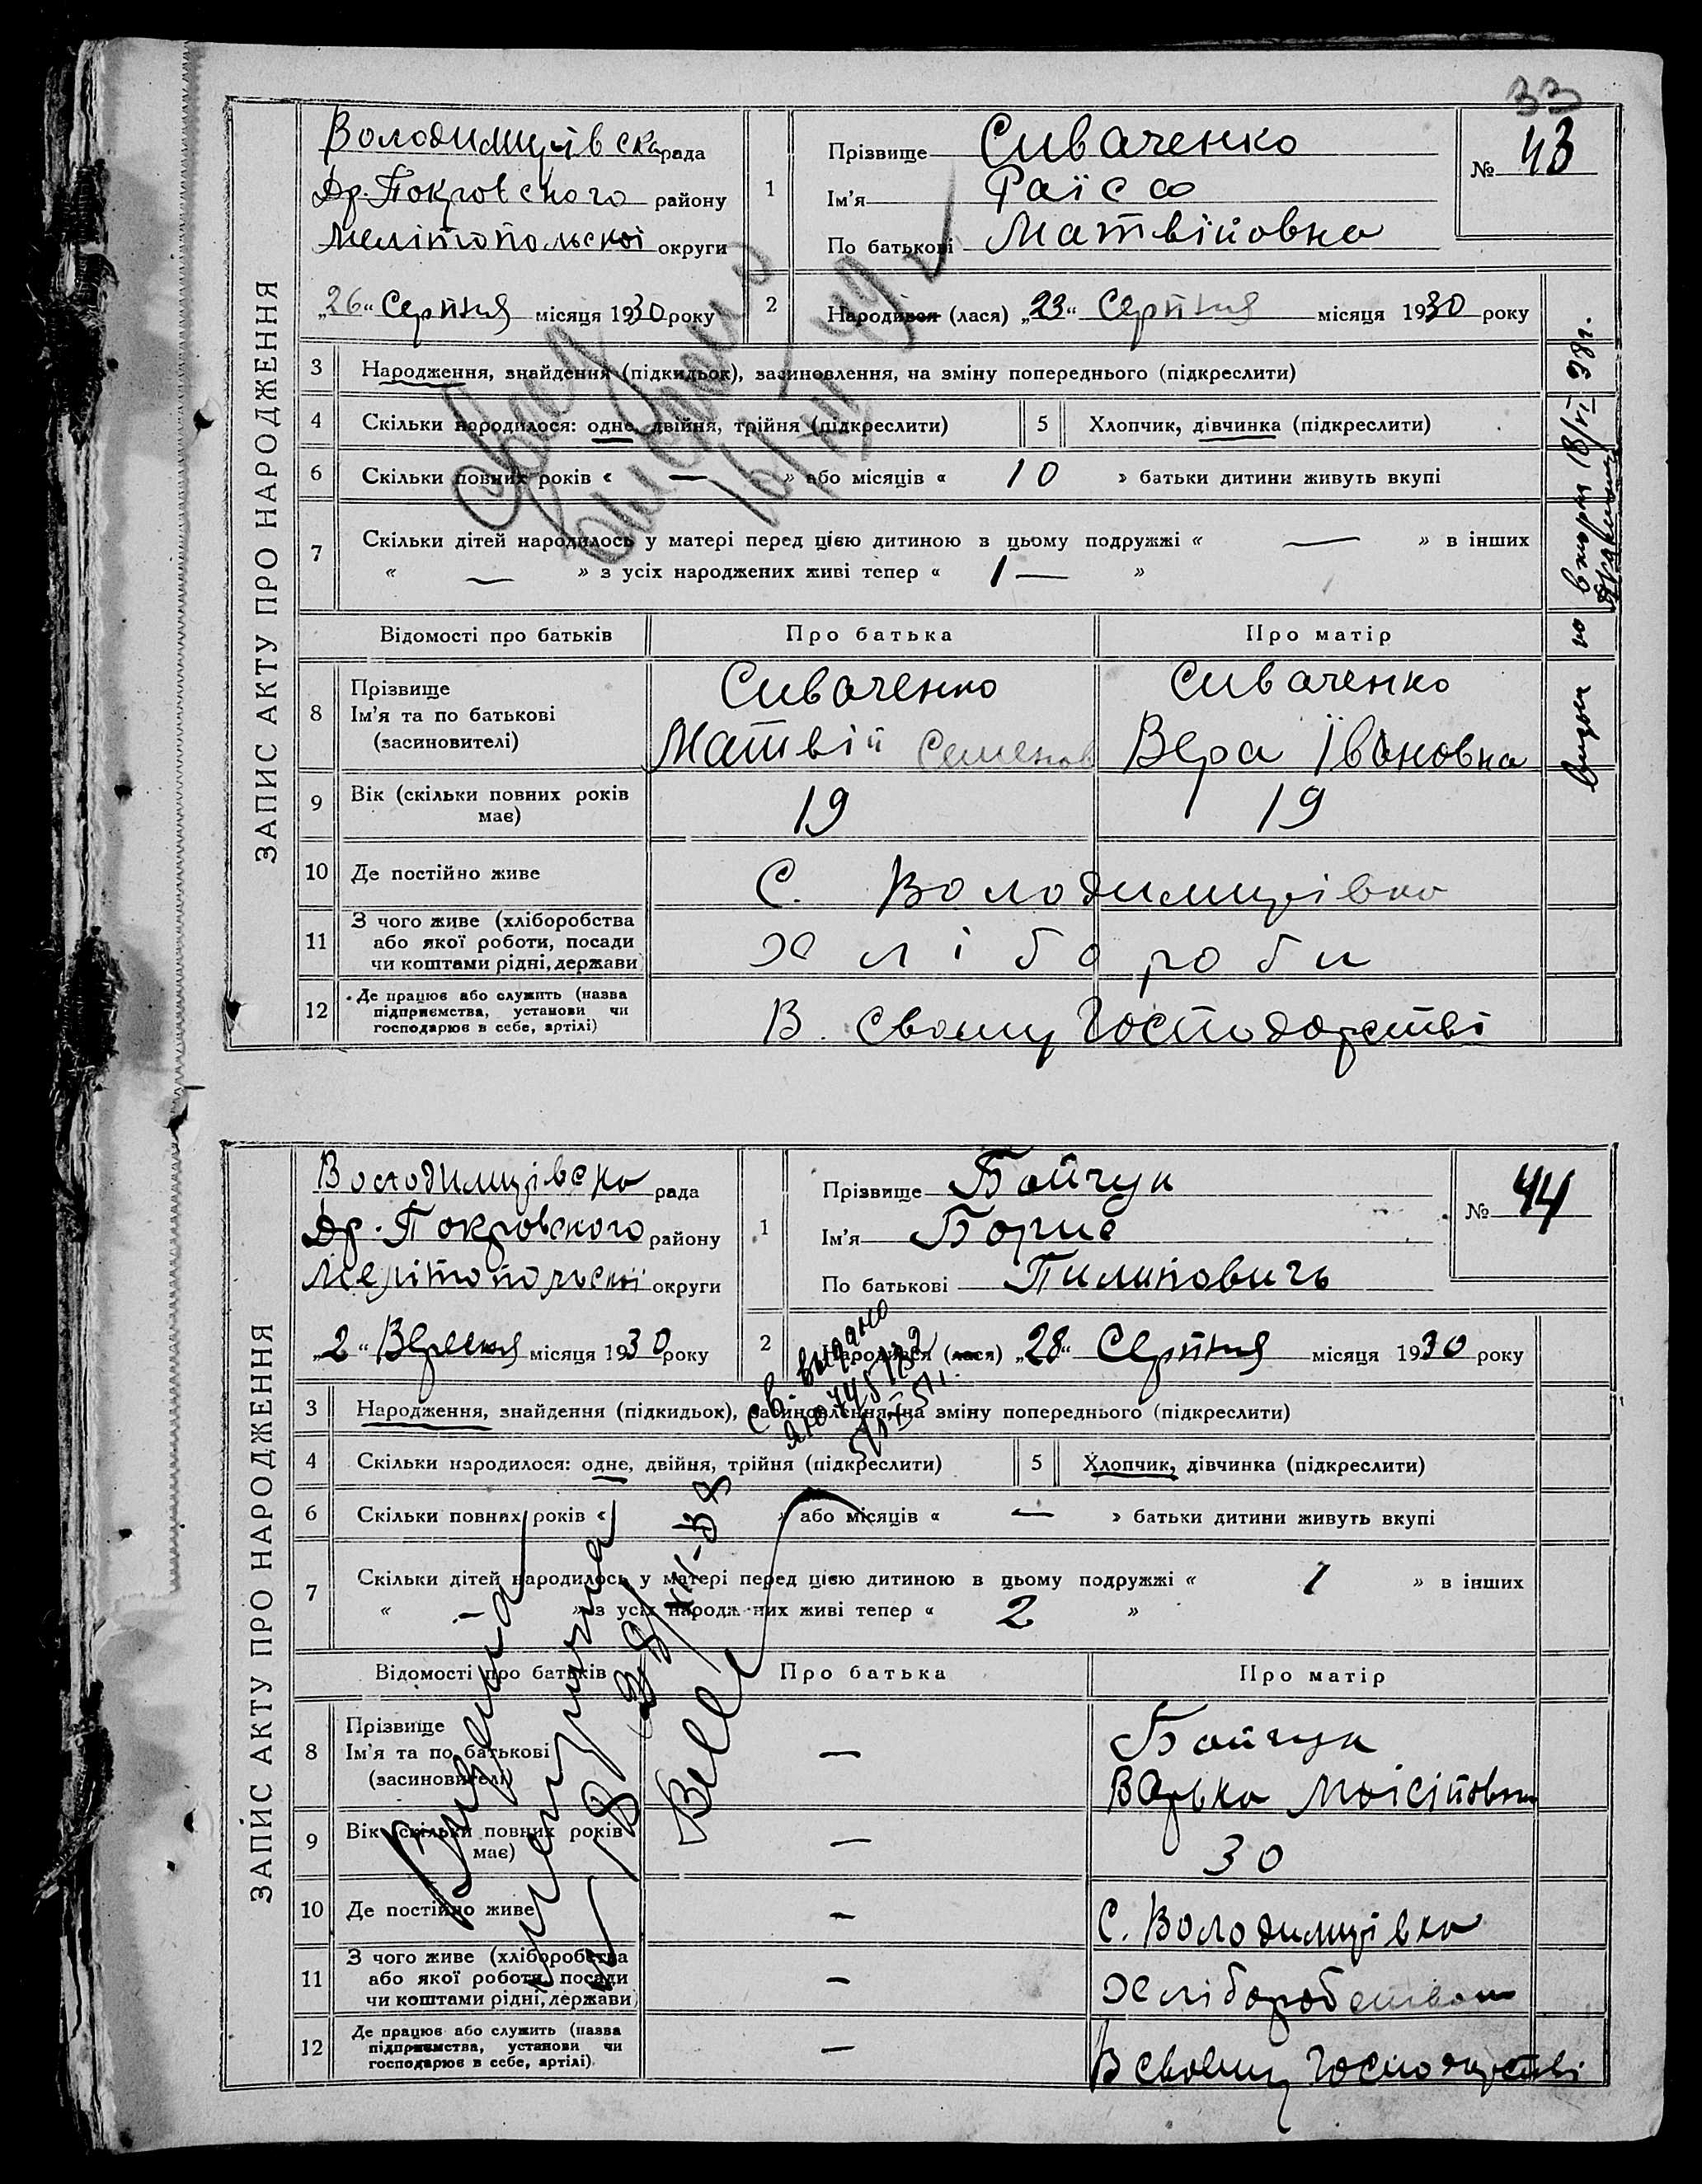 33
ЗАПИС АКТУ ПРО НАРОДЖЕННЯ
Володимирівска рада
Др. Покровського району
Мелітопольскої округи
„26“ Серпня місяця 1930 року
1
Прізвище Сиваченко
Ім'я Раїса
По батькові Матвійовна
№ 43
2 Народився (лася) „23“ Серпня місяця 1930 року
3 Народження, знайдення (підкидьок), засиновлення, на зміну попереднього (підкреслити)
4 Скільки народилося: одне, двійня, трійня (підкреслити)
5 Хлопчик, дівчинка (підкреслити)
6 Скільки повних років « — » або місяців « 10 » батьки дитини живуть вкупі
7 Скільки дітей народилось у матері перед цією дитиною в цьому подружжі « — » в інших
« — » з усіх народжених живі тепер « 1 — »
Відомості про батьків Про батька Про матір
8 Прізвище
Ім'я та по батькові
(засиновителі)
Сиваченко
Матвій Семенов
Сиваченко
Вера Івановна
9 Вік (скільки повних років
має)
19 19
10 Де постійно живе С. Володимирівка
11 З чого живе (хліборобства
або якої роботи, посади
чи коштами рідні, держави)
Хлібороби
12 Де працює або служить (назва
підприємства, установи чи
господарює в себе, артілі)
В свому господарстві
18/VI 38 г.
ЗАПИС АКТУ ПРО НАРОДЖЕННЯ
Володимирівска рада
Др. Покровського району
Мелітопольскої округи
„2“ Вересня місяця 1930 року
1
Прізвище Бойчук
Ім'я Борис
По батькові Пилиповичь
№ 44
2 Народився (лася) „28“ Серпня місяця 1930 року
св. выдано
3 Народження, знайдення (підкидьок), засиновлення, на зміну попереднього (підкреслити)
4 Скільки народилося: одне, двійня, трійня (підкреслити)
5 Хлопчик, дівчинка (підкреслити)
6 Скільки повних років « » або місяців « — » батьки дитини живуть вкупі
7 Скільки дітей народилось у матері перед цією дитиною в цьому подружжі « 1 » в інших
« — » з усіх народжених живі тепер « 2 »
Відомості про батьків Про батька Про матір
8 Прізвище
Ім'я та по батькові
(засиновителі)
—
Бойчук
Варька Моісіївна
9 Вік (скільки повних років
має)
— 30
10 Де постійно живе — С. Володимирівка
11 З чого живе (хліборобства
або якої роботи, посади
чи коштами рідні, держави)
— Хліборобством
12 Де працює або служить (назва
підприємства, установи чи
господарює в себе, артілі)
— В своєму господарстві